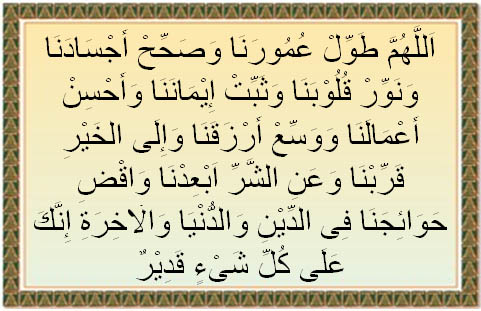 اَللَّهُمَّ طَوِّلْ عُمُورَنَا وَصَحِّحْ أَجْسَادَنَا
وَنَوِّرْ قُلُوْبَنَا وَثَبِّتْ إِيْمَانَنَا وَأَحْسِنْ
أَعْمَالَنَا وَوَسِّعْ أَرْزَقَنَا وَإِلَى الخَيْرِ
قَرِّبْنَا وَعَنِ الشَّرِّ اَبْعِدْنَا وَاقْضِ
حَوَائِجَنَا فِى الدِّيْنِ وَالدُّنْيَا وَالْاخِرَةِ إِنَّكَ
عَلَى كُلِّ شَىْءٍ قَدِيْرٌ